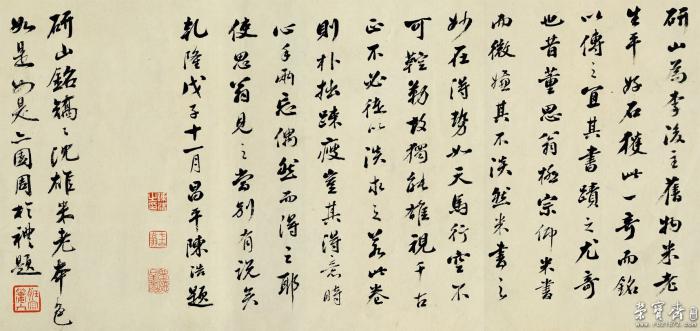 研山為李後主舊物米老
生平好石獲此一奇而銘
以傳之宜其書蹟之尤奇
也昔董思翁極宗仰米書
而微嫌其不淡然米書之
妙在得勢如天馬行空不
可鞚勒故獨能雄視千古
正不必徒以淡求之若此卷
則朴拙疎瘦豈其得意時
心手兩忘偶然而得之耶
使思翁見之當別有說矣
乾隆戊子十一月昌平陳浩題
研山銘矯矯沈雄米老本色
如是如是亦園周於禮題
榮寶齋
www.rbz1672.com